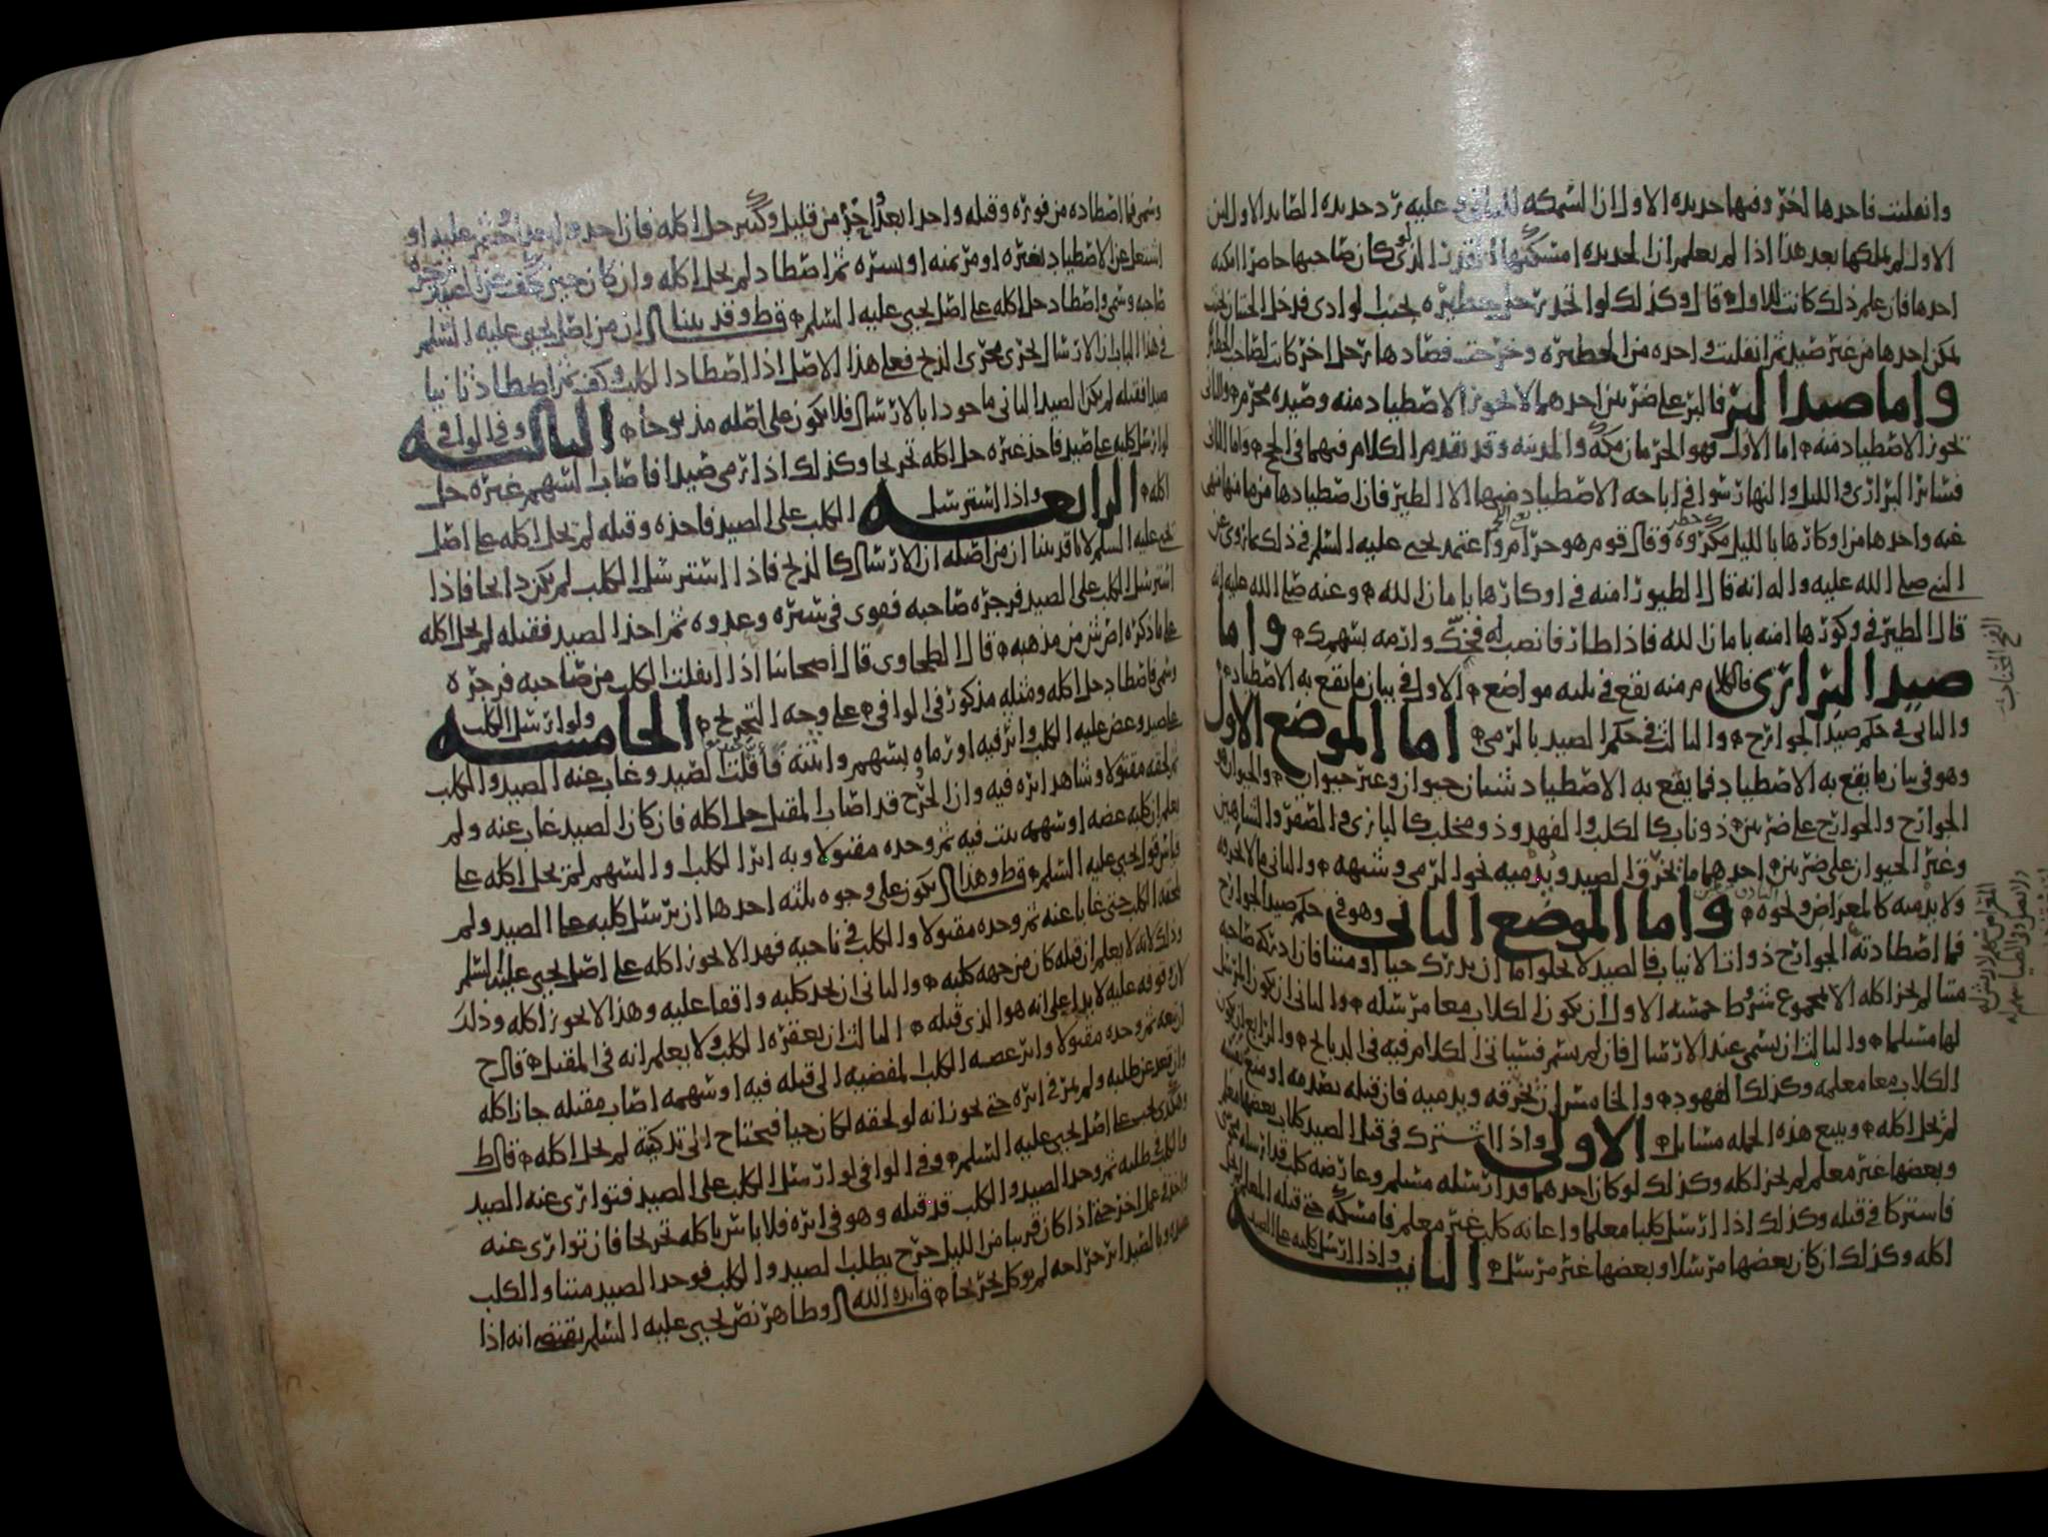 وانفلتت فاحدها اخر وفيها حديده الاول ان السمكه للثاني وعليه رد حديده الصايد الاول لان
الاول لم يملكها بعد هذا اذا لم يعلم ان الحديده امسكتها الذي لو كان صاحبها حاضرا امكنه
اخذها فان علم ذلك كانت للاول قال وكذلك لو اتخذ رجل حظيره بجنب الوادي فدخل
يمكن اخذها من غير صيد ثم انفلتت واحده من الحظيره وخرجت فصادها رجل اخر كانت لصاحب الحظيره
واما صيد البر فالبر على ضربين احدهما لا يجوز الاصطياد منه وصيده محرم والثاني
يجوز الاصطياد منه اما الاول فهو الحرمان مكه والمدينه وقد تقدم الكلام فيهما في الحج واما الثاني
فساير البراري والليل والنهار سوا في اباحه الاصطياد فيها الا الطير فان اصطيادها منها منهي
عنه واخذها من اوكارها بالليل مكروه وقال قوم هو حرام واعتمد يحيى عليه السلم في ذلك ما روي عن
النبي صلى الله عليه واله انه قال الطيور امنه في اوكارها بامان الله وعنه صلى الله عليه انه
قال الطير في وكورها امنه بامان الله فاذا طار فانصب له فخك وارمه بسهمك واما
صيد البراري فالكلام منه يقع في ثلثه مواضع الاول في بيان ما يقع به الاصطياد
والثاني في حكم صيد الجوارح والثالث في حكم الصيد بالرمي اما الموضع الاول
وهو في بيان ما يقع به الاصطياد فما يقع به الاصطياد شيان حيوان وغير حيوان والحيوان هو
الجوارح والجوارح على ضربين ذو ناب كالكلب والفهد وذو مخلب كالبازي والصقر والشاهين
وغير الحيوان على ضربين احدهما ما يخرق الصيد ويدميه نحو الرمي وشبهه والثاني ما لا يخرقه
ولا يدميه كالمعراض ونحوه واما الموضع الثاني وهو في حكم صيد الجوارح
فما اصطادته الجوارح ذوات الانياب فالصيد لا يخلو اما ان يدرك حيا او ميتا فان ادركه صاحبه
ميتا لم يجز اكله الا بمجموع شروط خمسه الاول ان يكون الكلاب معا مرسله والثاني ان يكون المرسل
لها مسلما والثالث ان يسمي عند الارسال فان لم يسم فسياتي الكلام فيه في الذبايح والرابع ان يكون
الكلاب معا معلمه وكذلك الفهود والخامس ان تخرقه ويدميه فان قتله بصدمه او
لم يحل اكله ويتبع هذه الجمله مسايل الاولى واذا اشترك في قتل الصيد كلاب بعضها معلم
وبعضها غير معلم لم يجز اكله وكذلك لو كان احدهما قد ارسله مسلم وعارضه كلب قد ارسله
فاشتركا في قتله وكذلك اذا ارسل كلبا معلما واعانه كلب غير معلم فامسكه حتى قتله المعلم لم يحل
اكله وكذلك ان كان بعضها مرسلا وبعضها غير مرسل الثانيه واذا ارسل كلبه على الصيد
وسمى فما اصطاده من فوره وقتله واحدا بعد اخر من قليل وكثير حل اكله فان اخذ
اشتغل عن الاصطياد بغيره او من يمنه او يسره ثم اصطاد لم يحل اكله وان كان حين كف
صاحبه وسمى واصطاد حل اكله على اصل يحيى عليه السلم قط وقد بينا ان من اصل يحيى عليه السلم
في هذا الباب ان الارسال يجري مجرى الذبح فعلى هذا الاصل اذا اصطاد الكلب وكف ثم اصطاد ثانيا
صيدا فقتله لم يكن الصيد الثاني ماخوذا بالارسال فلا يكون على اصله مذبوحا الثالثه وفي الوافي
لو ارسل كلبه على صيد فاخذ غيره حل اكله تخريجا وكذلك اذا رمى صيدا فاصاب السهم غيره حل
اكله الرابعه واذا استرسل الكلب على الصيد فاخذه وقتله لم يحل اكله على اصل
يحيى عليه السلم لانا قد بينا ان من اصله ان الارسال كالذبح فاذا استرسل الكلب لم يكن ذابحا فاذا
استرسل الكلب على الصيد فزجره صاحبه فقوي في سيره وعدوه ثم اخذ الصيد فقتله لم يحل اكله
على ما ذكره من مذهبه قال الطحاوي قال اصحابنا اذا انفلت الكلب من صاحبه فزجره
وسمى فاصطاد حل اكله ومثله مذكور في الوافي على وجه التخريج الخامسه ولو ارسل الكلب
على صيد وعض عليه الكلب واثر فيه او رماه بسهم واثبته فافلت الصيد وغاب عنه الصيد والكلب
ثم لحقه مقتولا وشاهد اثره فيه وان الجرح قد اصاب المقتل حل اكله فان كان الصيد غاب عنه ولم
يعلم ان كلبه عضه او سهمه ثبت فيه ثم وجده مقتولا وبه اثر الكلب او السهم لم يحل اكله على
قياس قول يحيى عليه السلم قط وهذا يكون على وجوه ثلثه احدها ان يرسل كلبه على الصيد ولم
يلحقه الكلب حتى غابا عنه ثم وجده مقتولا والكلب في ناحيه فهذا لا يجوز اكله على اصل يحيى عليه السلم
وذلك لانه لا يعلم ان قتله كان من جهه كلبه والثاني ان يجد كلبه واقفا عليه وهذا لا يجوز اكله وذلك
لان وقوفه عليه لا يدل على انه هو الذي قتله الثالث ان يعقره الكلب ولا يعلم انه في المقتل قال ح
ان تبعه ثم وجده مقتولا واثر عضه الكلب المفضيه الى قتله فيه او سهمه اصاب مقتله جاز اكله
وان قعد عن طلبه ولم يمر في اثره حتى يجوز انه لو لحقه لكان حيا فيحتاج الى تذكيته لم يحل اكله قال ط
وهكذى يجي على اصل يحيى عليه السلم وفي الوافي لو ارسل الكلب على الصيد فتوارى عنه الصيد
والكلب في طلبه ثم وجد الصيد والكلب قد قتله وهو في اثره فلا باس باكله تخريجا فان توارى عنه
واخذ في عمل اخر حتى اذا كان قريبا من الليل خرج يطلب الصيد والكلب فوجد الصيد ميتا والكلب
عنده وبالصيد اثر جراحه لم يوكل تخريجا قال وظاهر نص يحيى عليه السلم يقتضي انه اذا